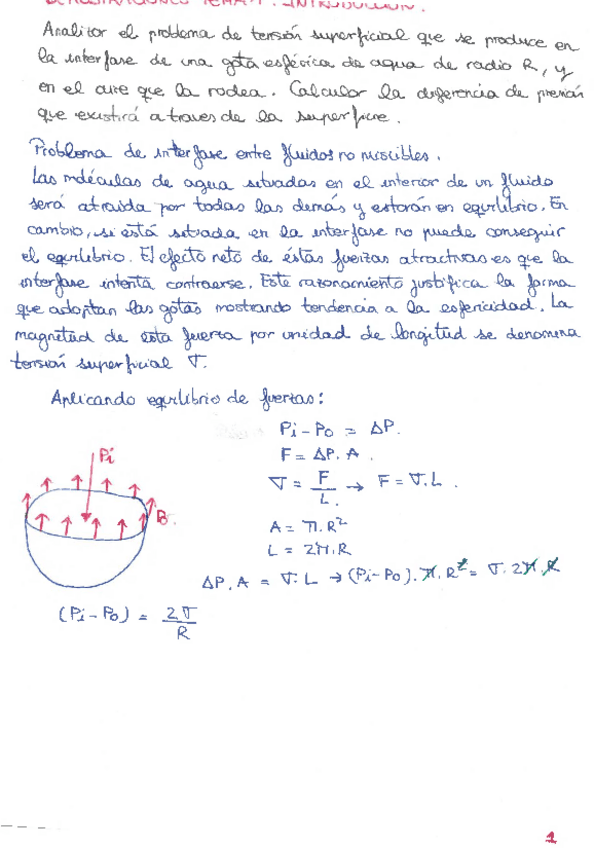 DEMOSTRACIONES TEMA 1: INTRODUCCIÓN.
Analizar el problema de tensión superficial que se produce en
la interfase de una gota esférica de agua de radio R, y
en el aire que la rodea. Calcular la diferencia de presión
que existirá a traves de la superficie.
Problema de interfase entre fluidos no miscibles.
Las moléculas de agua situadas en el interior de un fluido
será atraida por todas las demás y estarán en equilibrio. En
cambio, si está situada en la interfase no puede conseguir
el equilibrio. El efecto neto de éstas fuerzas atractivas es que la
interfase intenta contraerse. Este razonamiento justifica la forma
que adoptan las gotas mostrando tendencia a la esfericidad. La
magnitud de esta fuerza por unidad de longitud se denomina
tensión superficial σ.
Aplicando equilibrio de fuerzas:
Pi - Po = ΔP.
F = ΔP. A.
σ = F/L. → F = σ.L.
A = π.R²
L = 2π.R
Pi
ΔP. A = σ. L → (Pi - Po). π. R² = σ. 2π. R
(Pi - Po) = 2σ/R
1